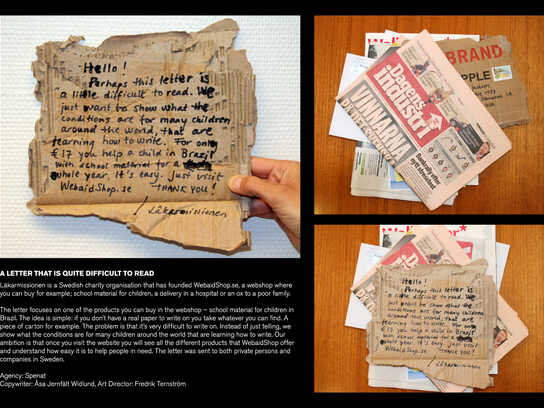 Hello!
Perhaps this letter is
a little difficult to read. We
just want to show what the
conditions are for many children
around the world, that are
learning how to write. For only
€17 you help a child in Brazil
with school material for a
whole year. It's easy. Just visit
WebaidShop.se THANK YOU!
/Läkarmissionen
BRAND
PPLE
Dagens
industri
VINNARNA
A LETTER THAT IS QUITE DIFFICULT TO READ
Läkarmissionen is a Swedish charity organisation that has founded WebaidShop.se, a webshop where
you can buy for example; school material for children, a delivery in a hospital or an ox to a poor family.
The letter focuses on one of the products you can buy in the webshop – school material for children in
Brazil. The idea is simple: if you don't have a real paper to write on you take whatever you can find. A
piece of carton for example. The problem is that it's very difficult to write on. Instead of just telling, we
show what the conditions are for many children around the world that are learning how to write. Our
ambition is that once you visit the website you will see all the different products that WebaidShop offer
and understand how easy it is to help people in need. The letter was sent to both private persons and
companies in Sweden.
Agency: Spenat
Copywriter: Åsa Jernfält Widlund, Art Director: Fredrik Ternström
Hello!
Perhaps this letter is
a little difficult to read. We
just want to show what the
conditions are for many children
around the world, that are
learning how to write. For only
€17 you help a child in Brazil
with school material for a
whole year. It's easy. Just visit
WebaidShop.se THANK YOU!
/Läkarmissionen